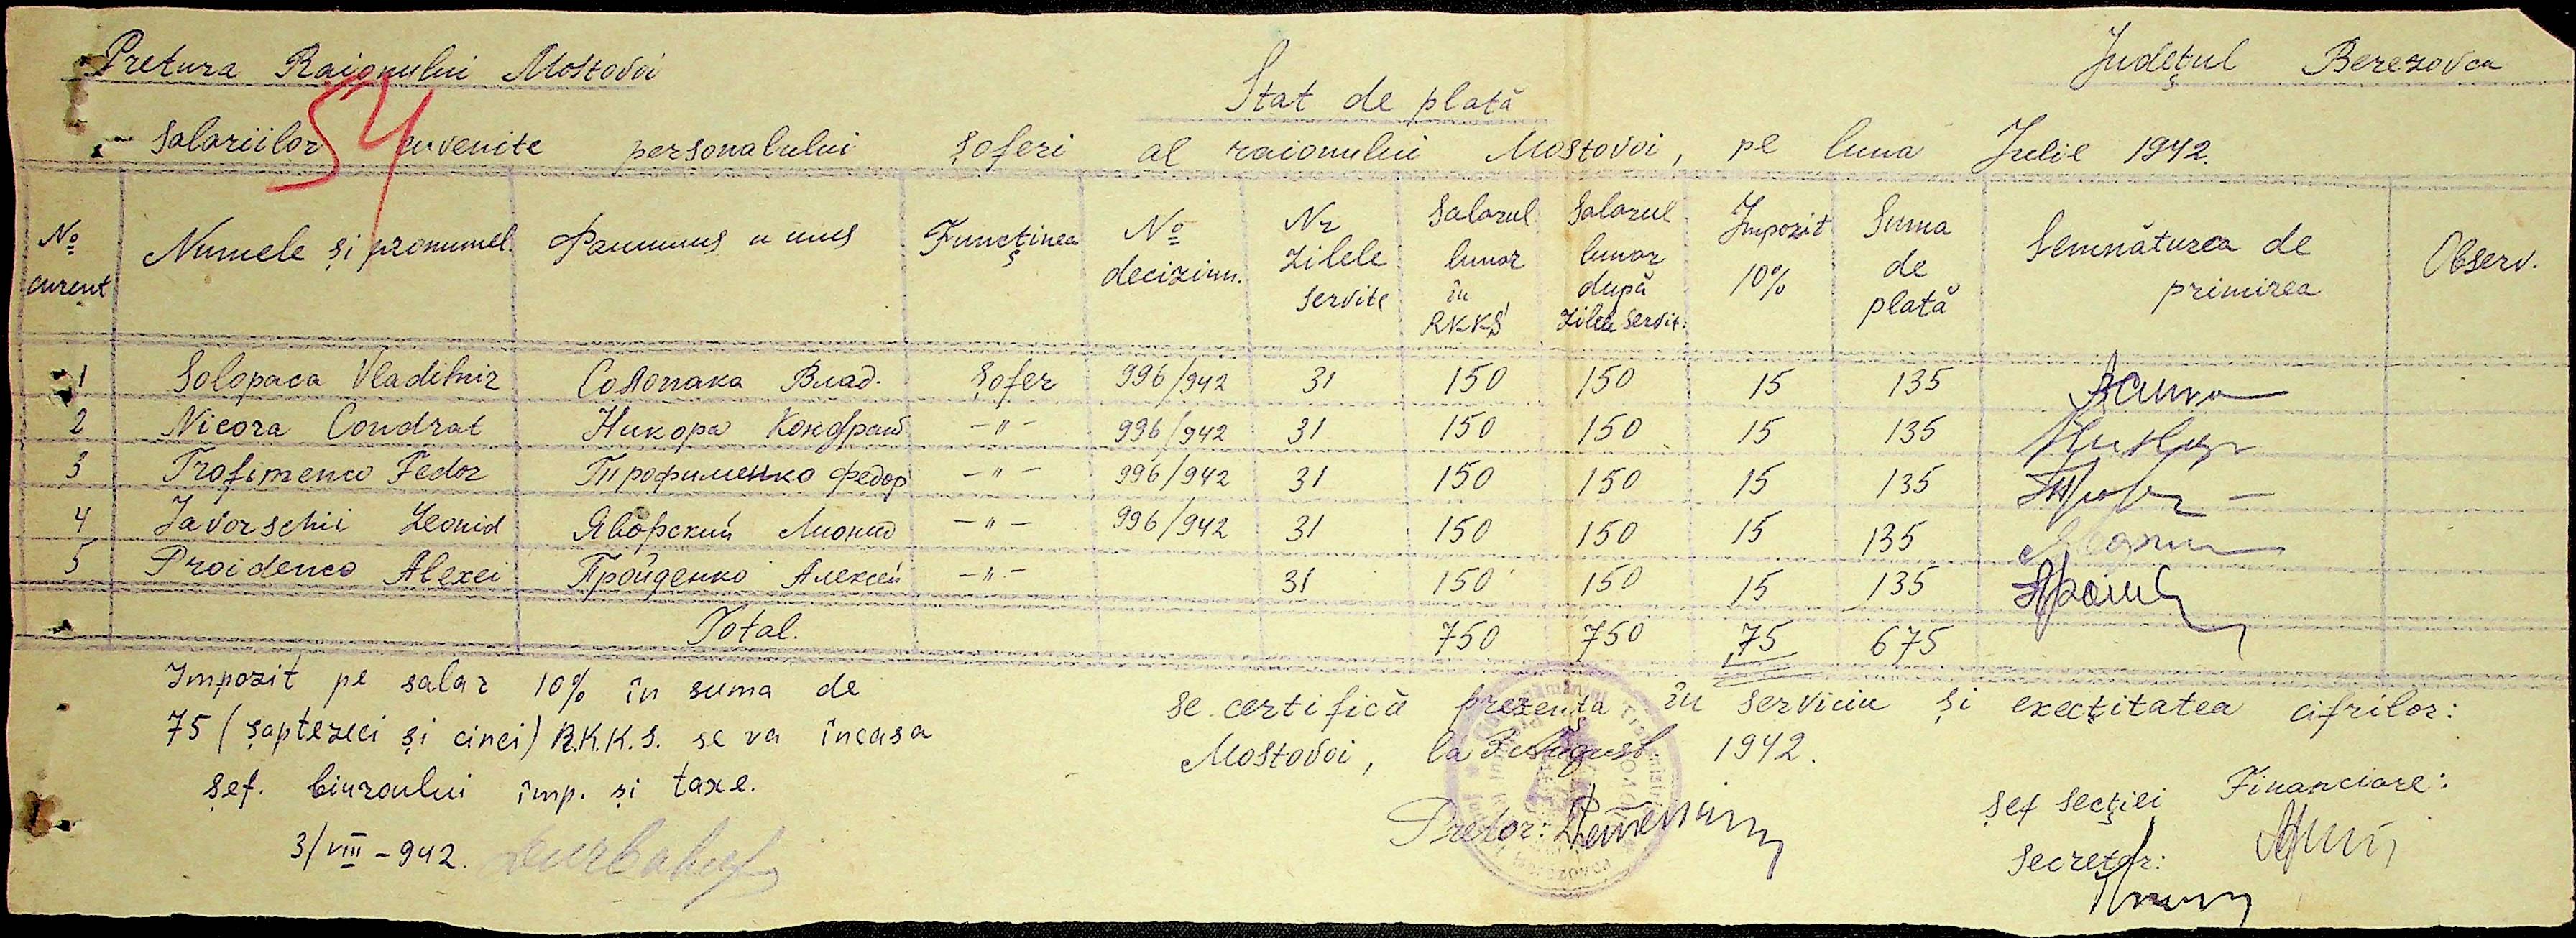 Pretura Raionului Mostovoi
Județul Berezovca
54
Stat de plată
Salariilor cuvenite personalului șoferi al raionului Mostovoi, pe luna Iulie 1942.
№ curent Numele și pronumel. Фамилия и имя Funcținea № deciziun. Nr zilele servite Salarul lunar în RKKS Salarul lunar după zilele servit. Impozit 10% Suma de plată Semnăturea de primirea Observ.
1 Solopaca Vladimir Солопака Влад. Șofer 996/942 31 150 150 15 135
2 Nicora Condrat Никора Кондрат -"- 996/942 31 150 150 15 135
3 Trofimenco Fedor Трофименко Федор -"- 996/942 31 150 150 15 135
4 Javorschii Leonid Яворский Лионид -"- 996/942 31 150 150 15 135
5 Proidenco Alexei Пройденко Алексей -"- 31 150 150 15 135
Total. 750 750 75 675
Impozit pe salar 10% în suma de
75 (șaptezeci și cinci) R.K.K.S. se va încasa
șef. biuroului imp. și taxe.
3/VIII-942.
se certifică prezența în serviciu și execțitatea cifrilor:
Mostovoi, la August 1942.
Pretor:
șef secției Financiare:
Secretar: